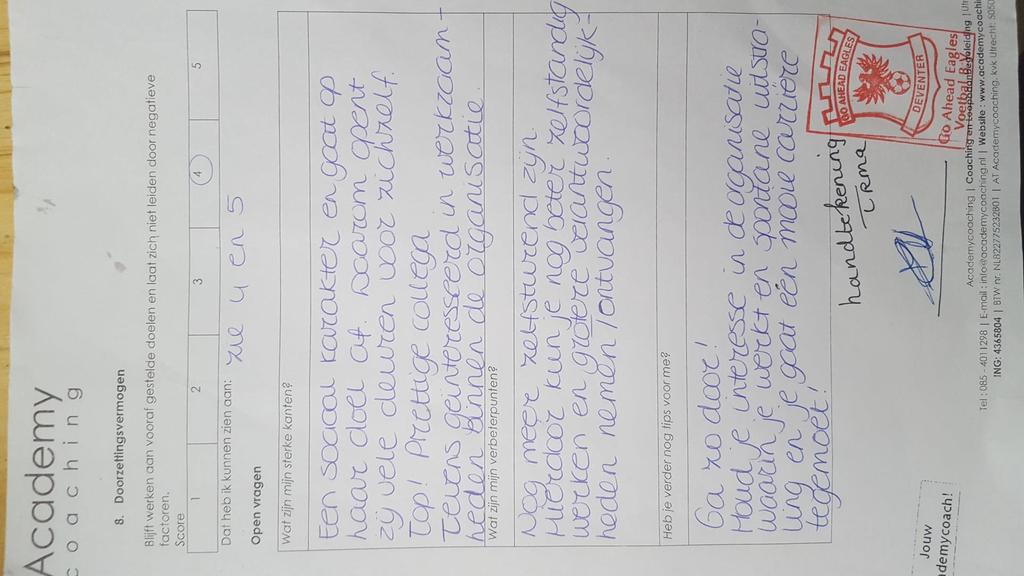 Academy
coaching
8. Doorzettingsvermogen
Blijft werken aan vooraf gestelde doelen en laat zich niet leiden door negatieve
factoren.
Score
1 2 3 4 5
Dat heb ik kunnen zien aan: zie 4 en 5
Open vragen
Wat zijn mijn sterke kanten?
Een sociaal karakter en gaat op
haar doel af. Daarom opent
zij vele deuren voor zichzelf.
Top! Prettige collega
Tevens geïnteresseerd in werkzaam-
heden binnen de organisatie.
Wat zijn mijn verbeterpunten?
Nog meer zelfsturend zijn.
Hierdoor kun je nog beter zelfstandig
werken en grotere verantwoordelijk-
heden nemen/ontvangen.
Heb je verder nog tips voor me?
Ga zo door!
Houd je interesse in de organisatie
waarin je werkt en spontane uitstra-
ling en je gaat één mooie carrière
tegemoet!
handtekening
Irma
GO AHEAD EAGLES
DEVENTER
Go Ahead Eagles
Voetbal B.V.
Jouw
demycoach!
Academycoaching | Coaching en Loopbaanbegeleiding | Utr
Tel : 085 - 4011298 | E-mail : info@academycoaching.nl | Website : www.academycoaching.
ING: 4365804 | BTW nr. NL822775232B01 | AT Academycoaching. kvk Utrecht: 5050